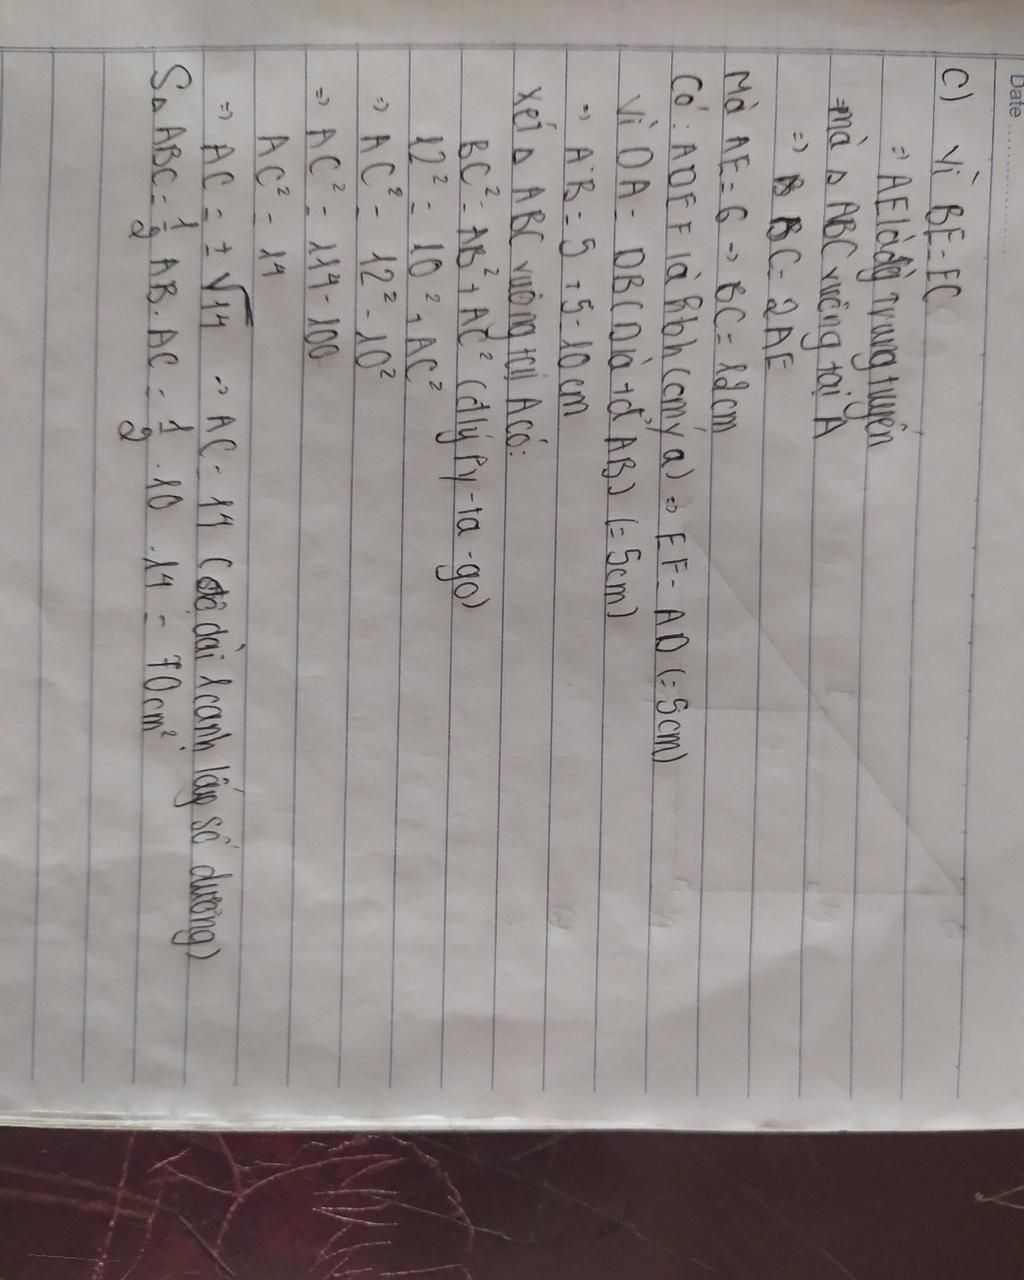 Date
C) Vì BE = EC
=> AE là đg trung tuyến
=> mà Δ ABC vuông tại A
=> BC = 2AE
Mà AE = 6 => BC = 12cm
Có: ADEF là hbh (cm ý a) => EF = AD (= 5cm)
Vì DA = DB (D là tđ AB) (= 5cm)
=> AB = 5 + 5 = 10cm
Xét Δ ABC vuông tại A có:
BC² = AB² + AC² (đlý Py-ta-go)
12² = 10² + AC²
=> AC² = 12² - 10²
=> AC² = 114 - 100
AC² = 14
=> AC = ± √14 => AC = 14 (độ dài 1 cạnh lấy số dương)
SΔ ABC = 1/2 AB . AC = 1/2 . 10 . 14 = 70cm²